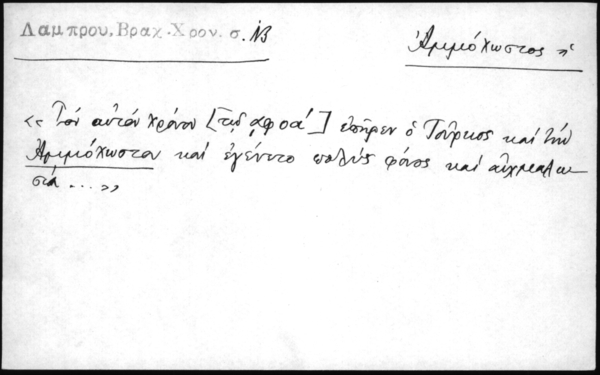 Λαμπρου, Βραχ. Χρον. σ. 12
Ἀμμόχωστος ἡ
«Τὸν αὐτὸν χρόνον [τῷ αφοα΄] ἐπῆρεν ὁ Τοῦρκος καὶ τὴν
Ἀμμόχωστον καὶ ἐγένετο πολὺς φόνος καὶ αἰχμαλω-
σία...»